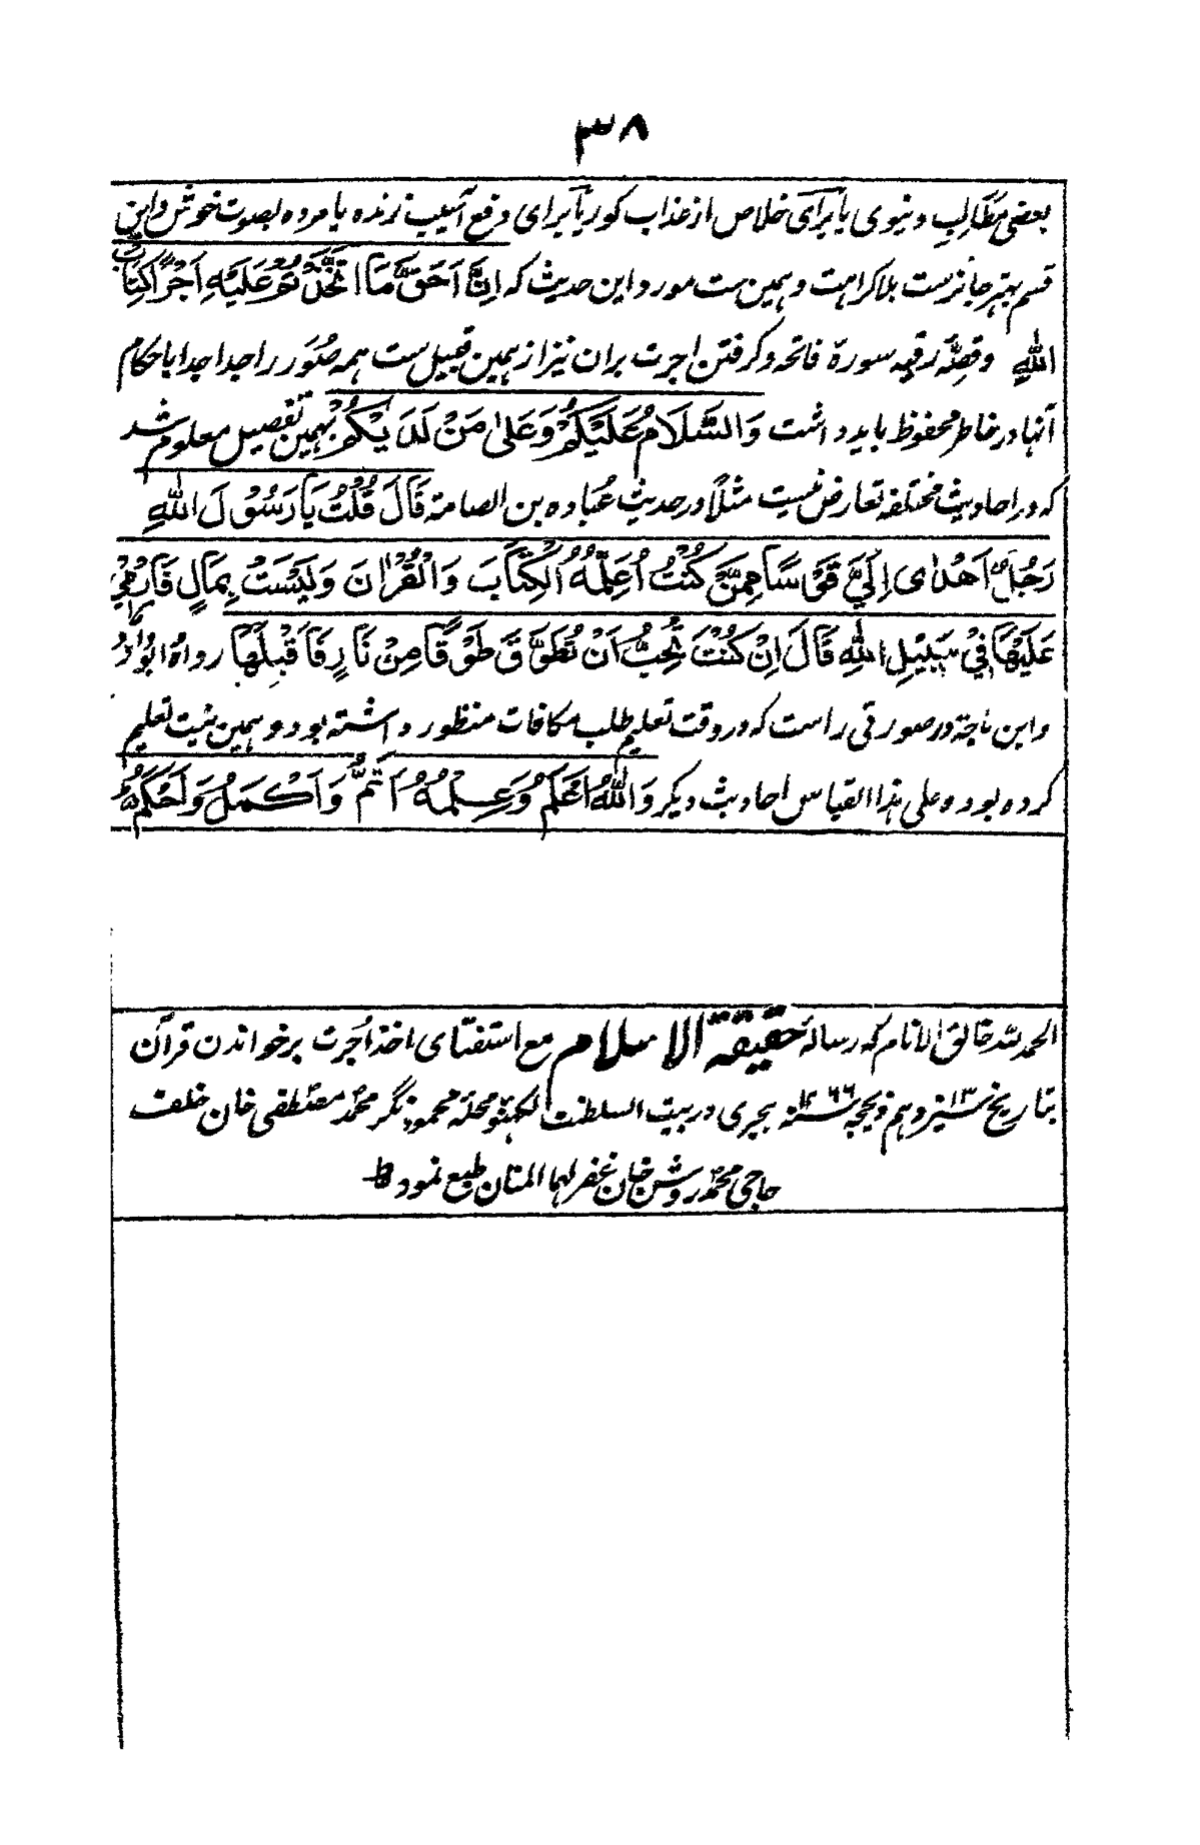 ۳۸
بعضی مطالب دنیوی یا برای خلاص از عذاب گور یا برای دفع آسیب زنده یا مرده بصوت خوش و این
قسم بهتر جائزست بلا کراهت و همین ست مورد این حدیث که اِنَّ اَحَقَّ مَا اتَّخَذْتُمْ عَلَيْهِ اَجْرًا كِتَابُ
اللهِ وقصّهٔ رقیه سورة فاتحه و گرفتن اجرت بران نیز از همین قبیل ست همه صُوَر را جدا جدا با حکام
آنها در خاطر محفوظ باید داشت وَالسَّلَامُ عَلَيْكُمْ وَعَلىٰ مَنْ لَدَيْكُمْ بهمین تفصیل معلوم شد
که در احادیث مختلفه تعارض نیست مثلاً در حدیث عُباده بن الصامت قَالَ قُلْتُ يَا رَسُوْلَ اللهِ
رَجُلٌ اَهْدٰى اِلَيَّ قَوْسًا مِمَّنْ كُنْتُ اُعَلِّمُهُ الْكِتَابَ وَالْقُرْاٰنَ وَلَيْسَتْ بِمَالٍ فَاَرْمِيْ
عَلَيْهَا فِيْ سَبِيْلِ اللهِ قَالَ اِنْ كُنْتَ تُحِبُّ اَنْ تُطَوَّقَ طَوْقًا مِنْ نَارٍ فَاَقْبَلْهَا رواهُ ابُوداوُدُ
وابن ماجة در صورتی راست که در وقت تعلیم طلب مکافات منظور داشته بود و بهمین نیت تعلیم
کرده بود و علی هذا القیاس احادیث دیگر وَاللهُ اَعْلَمُ وَعِلْمُهُ اَتَمُّ وَاَكْمَلُ وَاَحْكَمُ
الحمد لله خالق الانام که رسالهٔ حقیقة الاسلام مع استفتای اخذ اُجرت برخواندن قرآن
بتاریخ ۱۳ سیزدهم ذیحجه سنه ۱۲۶۶ هجری در بیت السلطنت لکهنؤ محلهٔ محمود نگر محمّد مصطفی خان خلف
حاجی محمّد روشن خان غفر لهما المنان طبع نمود فقط